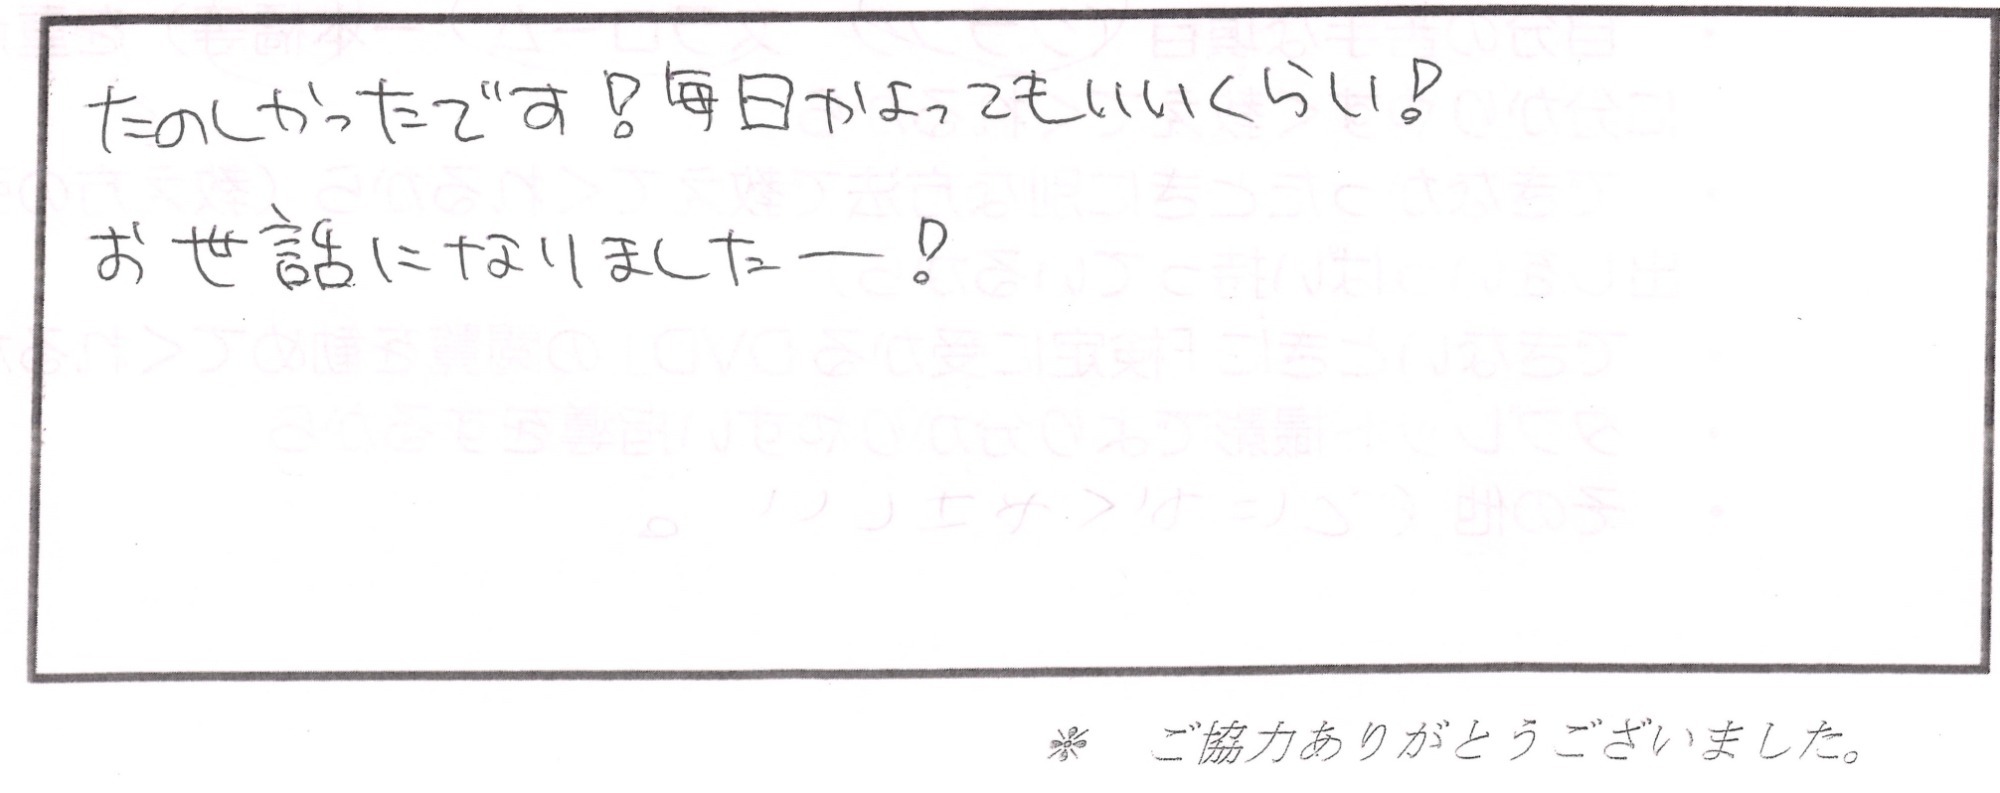 たのしかったです!毎日かよってもいいくらい!
お世話になりましたー!
※ ご協力ありがとうございました。